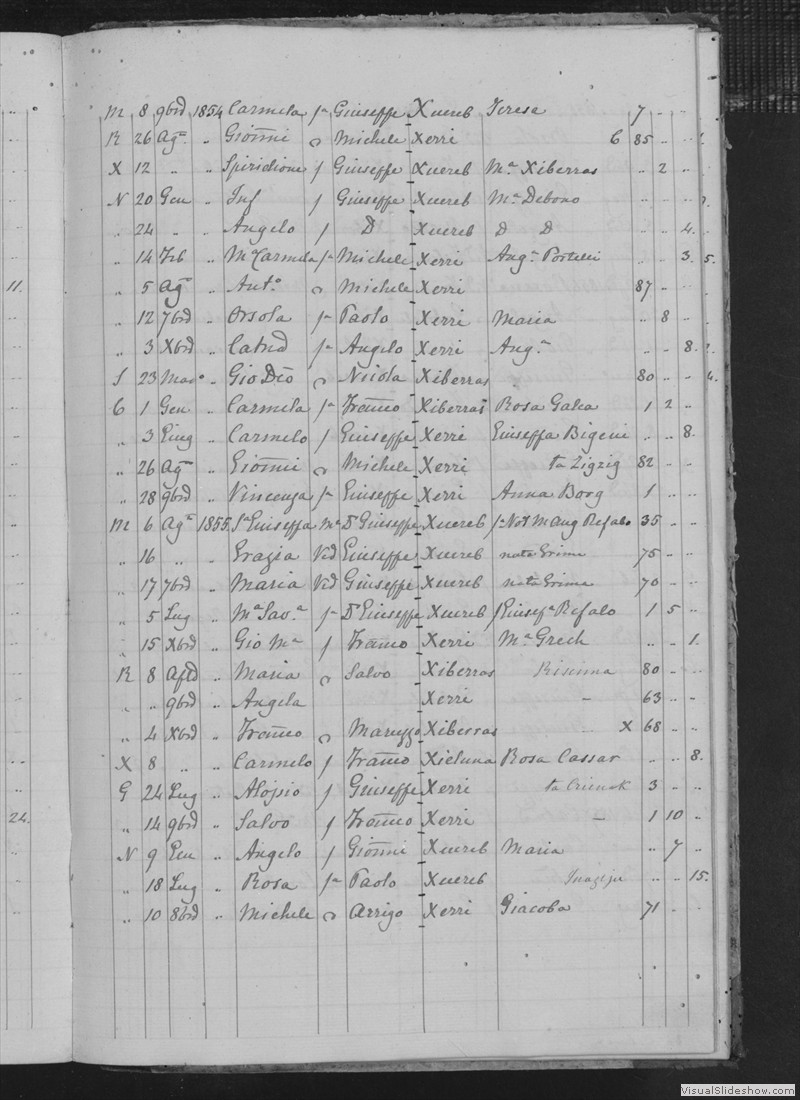 M 8 9brd 1854 Carmela fa Giuseppe Xuereb Teresa 7 " "
R 26 Aga " Gionni Michele Xerri 6 85 " "
X 12 " " Spiridione f Giuseppe Xuereb Ma Xiberras " 2 "
N 20 Gen " Inf f Giuseppe Xuereb Ma Debono " " "
" 24 " " Angelo f D Xuereb D D " " 4.
" 14 Feb " Ma Carmela fa Michele Xerri Anga Portelli " " 3. 5.
11. " 5 Ag " Anto Michele Xerri 87 " "
" 12 7brd " Orsola fa Paolo Xerri Maria " 8 "
" 3 Xbrd " Catnd fa Angelo Xerri Anga " " 8.
S 23 Mago " Gio Dco Nicola Xiberras 80 " "
G 1 Gen " Carmela fa Franco Xiberras Rosa Galea 1 2 "
" 3 Giug " Carmelo f Giuseppe Xerri Giuseppa Bigeni " " 8.
" 26 Ag " Gionni Michele Xerri ta Zigzig 82 " "
" 28 9brd " Vincenza fa Giuseppe Xerri Anna Borg 1 " "
M 6 Aga 1855 Sa Giuseppa Ma Dr Giuseppe Xuereb fa Not M Ang Refalo 35 " "
" 16 " " Grazia Ved Giuseppe Xuereb nata Grima 75 " "
" 17 7brd " Maria Ved Giuseppe Xuereb nata Grima 70 " "
" 5 Lug " Ma Sava fa Dr Giuseppe Xuereb f Giusefa Refalo 1 5 "
" 15 Xbrd " Gio Ma f Franco Xerri Ma Grech " " 1.
R 8 " Maria Salvo Xiberras 80 " "
" " 9brd " Angela Xerri " 63 " "
" 4 Xbrd " Franco Maruzzo Xiberras X 68 " "
X 8 " " Carmelo f Franco Xicluna Rosa Cassar " " 8.
G 24 Lug " Alojsio f Giuseppe Xerri ta 3 " "
24. " 14 9brd " Salvo f Franco Xerri " 1 10 "
N 9 Gen " Angelo f Gionni Xuereb Maria " 7 "
" 18 Lug " Rosa fa Paolo Xuereb " " 15.
" 10 8brd " Michele Arrigo Xerri Giacoba 71 " "
VisualSlideshow.com